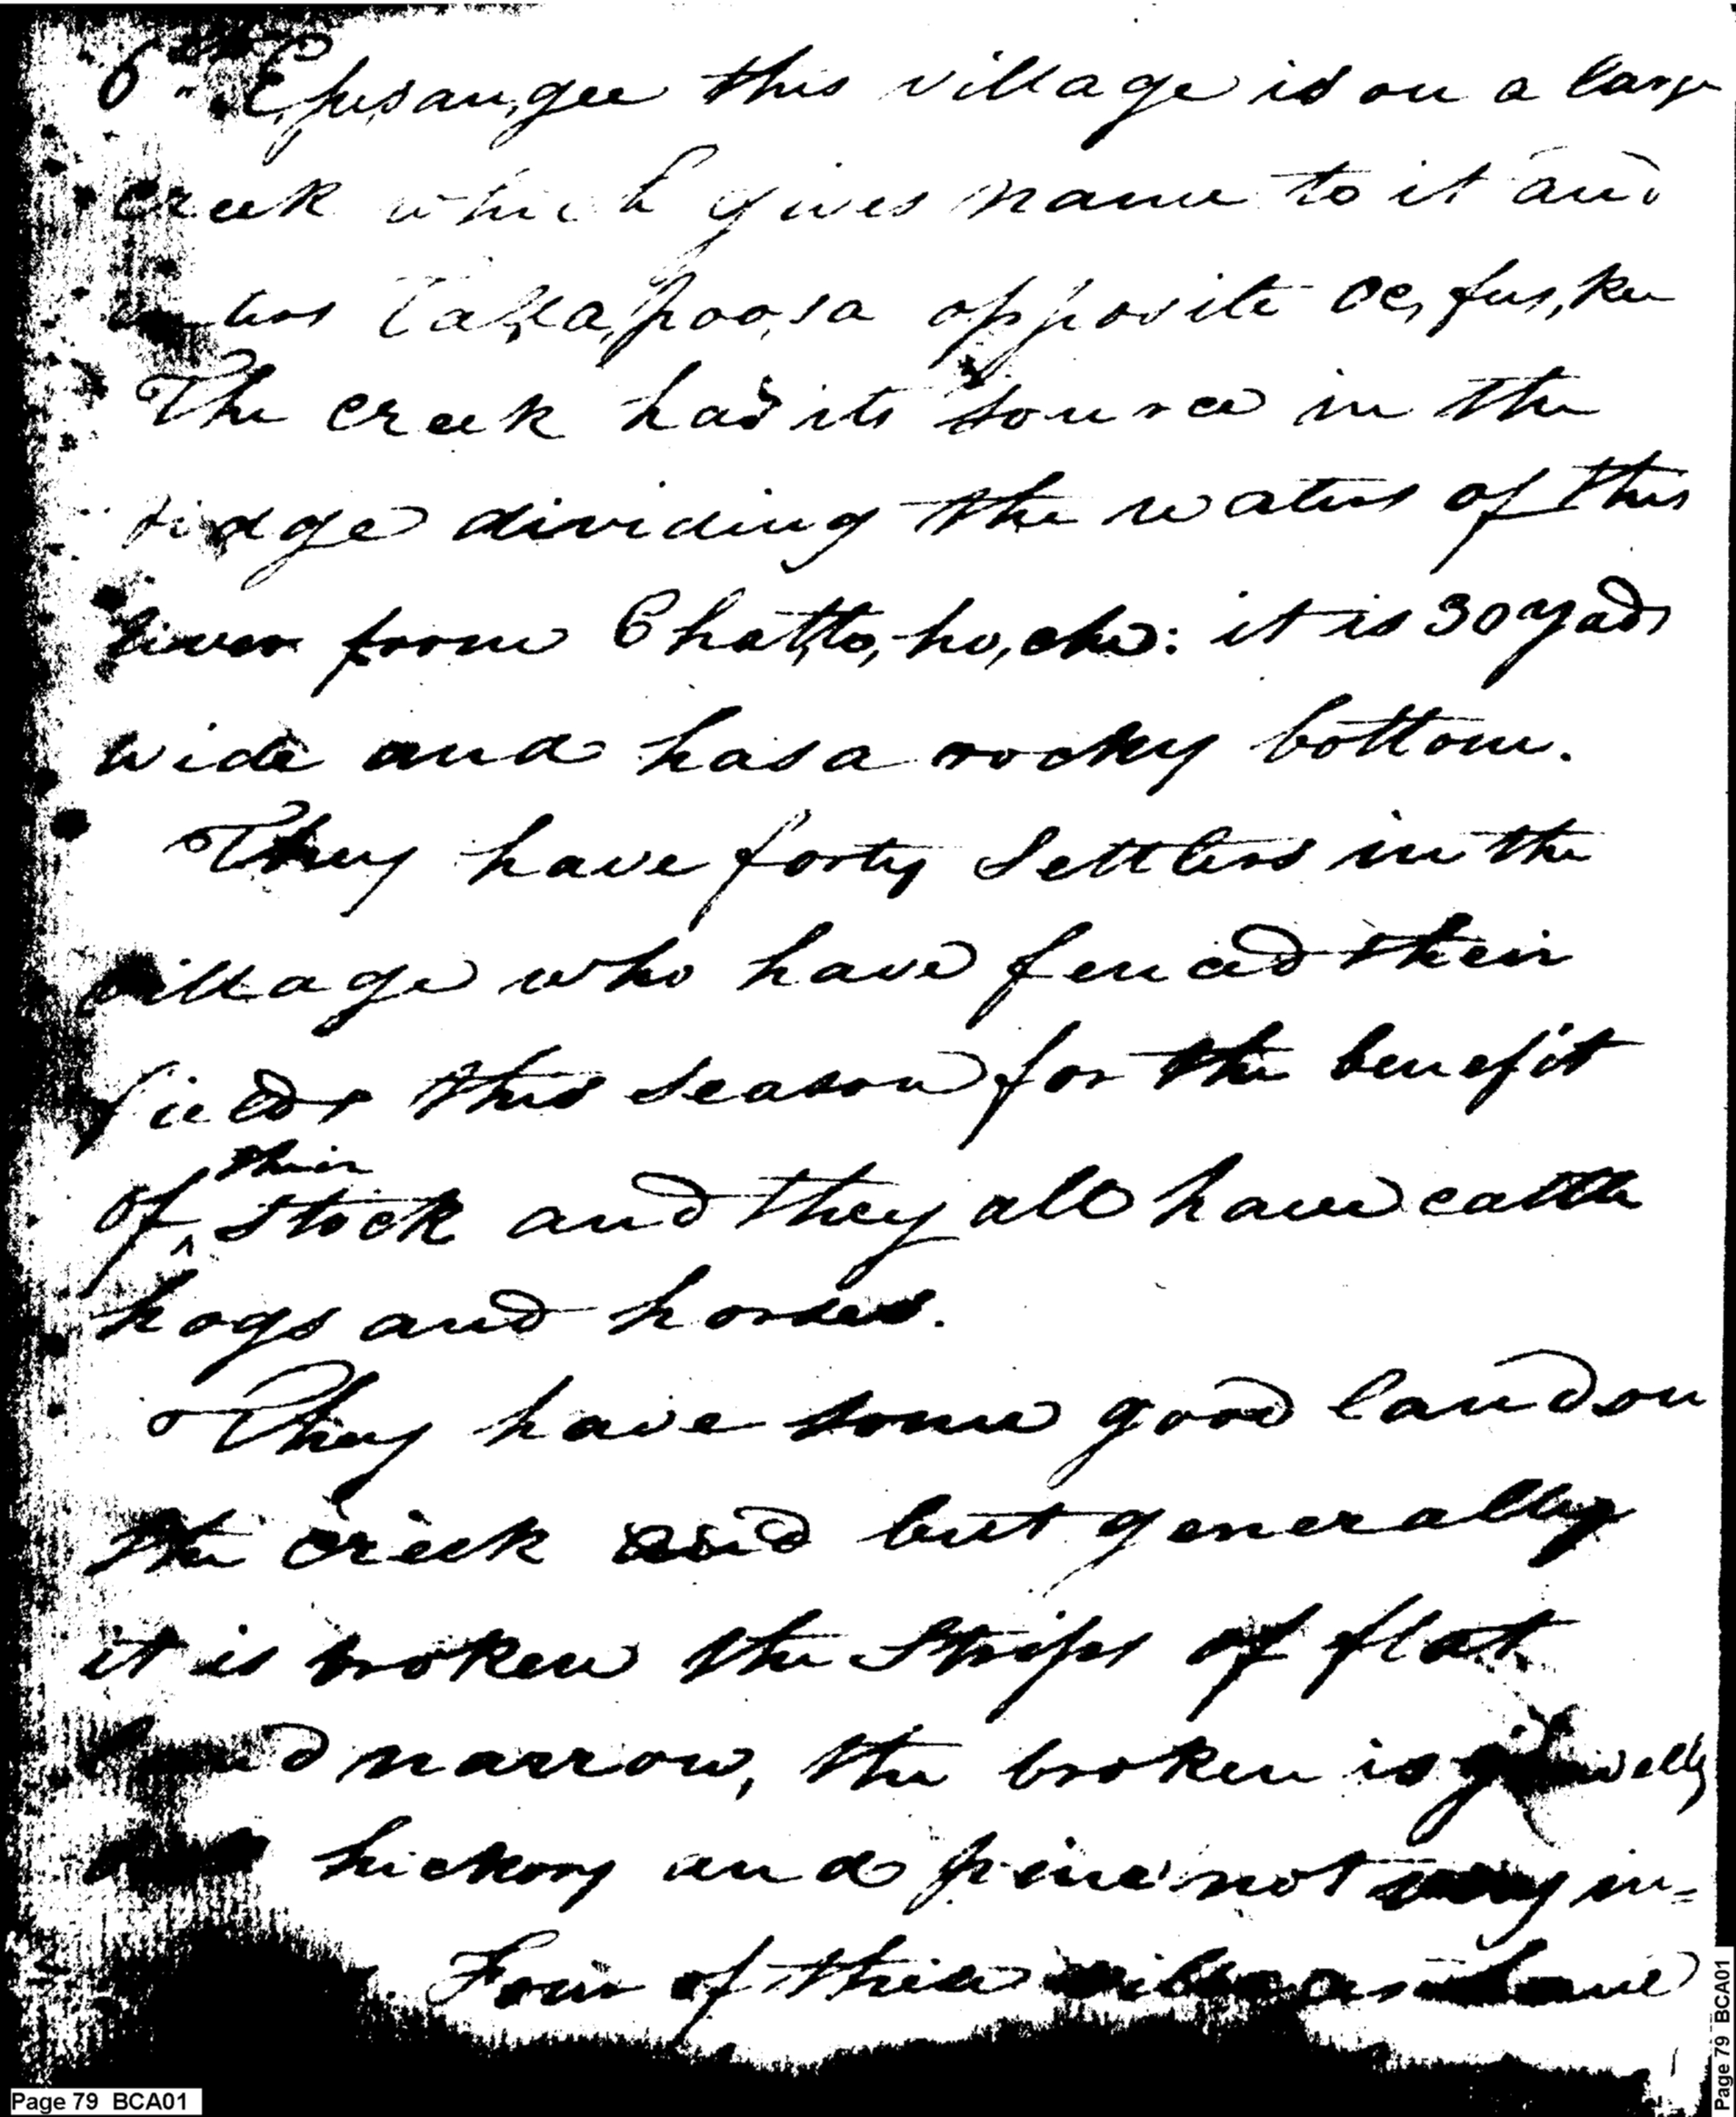 6th E,pe,sau,gee this village is on a large
creek which gives name to it and
enters Talla,poo,sa opposite oc,fus,kee
The creek has its source in the
ridge dividing the waters of this
river from Chatto,ho,che: it is 30 yads
wide and has a rocky bottom.
They have forty settlers in the
village who have fenced their
fields this season for the benefit
of their stock and they all have cattle
hogs and horses.
They have some good land on
the creek but generally
it is broken the strips of flat
land narrow, the broken is gravelly
hickory and pine not very in=
Four of these villages have
Page 79 BCA01
Page 79 BCA01